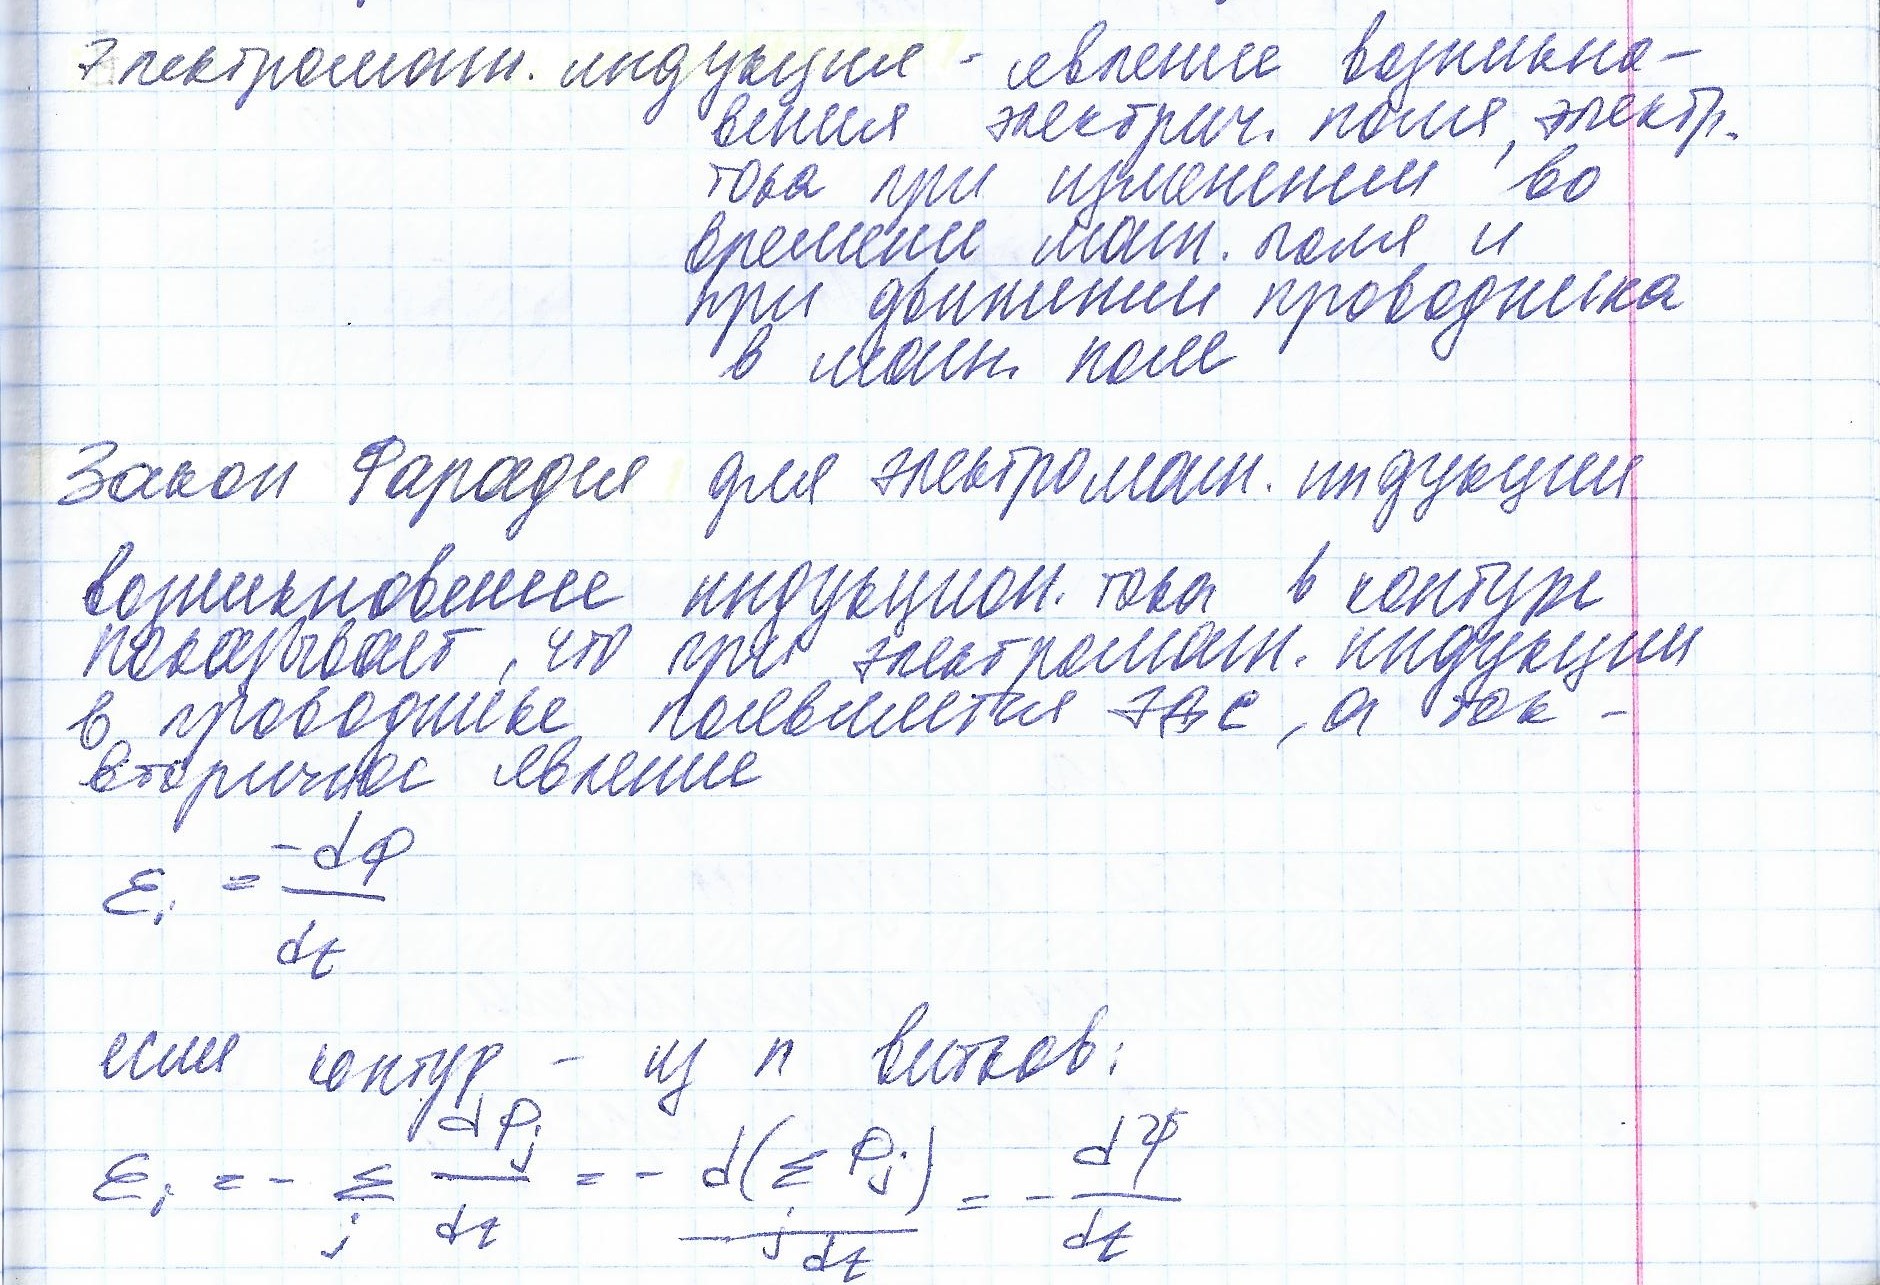 Электромагн. индукция - явление возникно-
вения электрич. поля, электр.
тока при изменении во
времени магн. поля и
при движении проводника
в магн. поле
Закон Фарадея для электромагн. индукции
возникновение индукцион. тока в контуре
показывает, что при электромагн. индукции
в проводнике появляется ЭДС, а ток -
вторичное явление
ℰᵢ = -dФ/dt
если контур - из n витков:
ℰᵢ = - Σ_j dФ_j/dt = - d(Σ_j Ф_j)/dt = - dΨ/dt